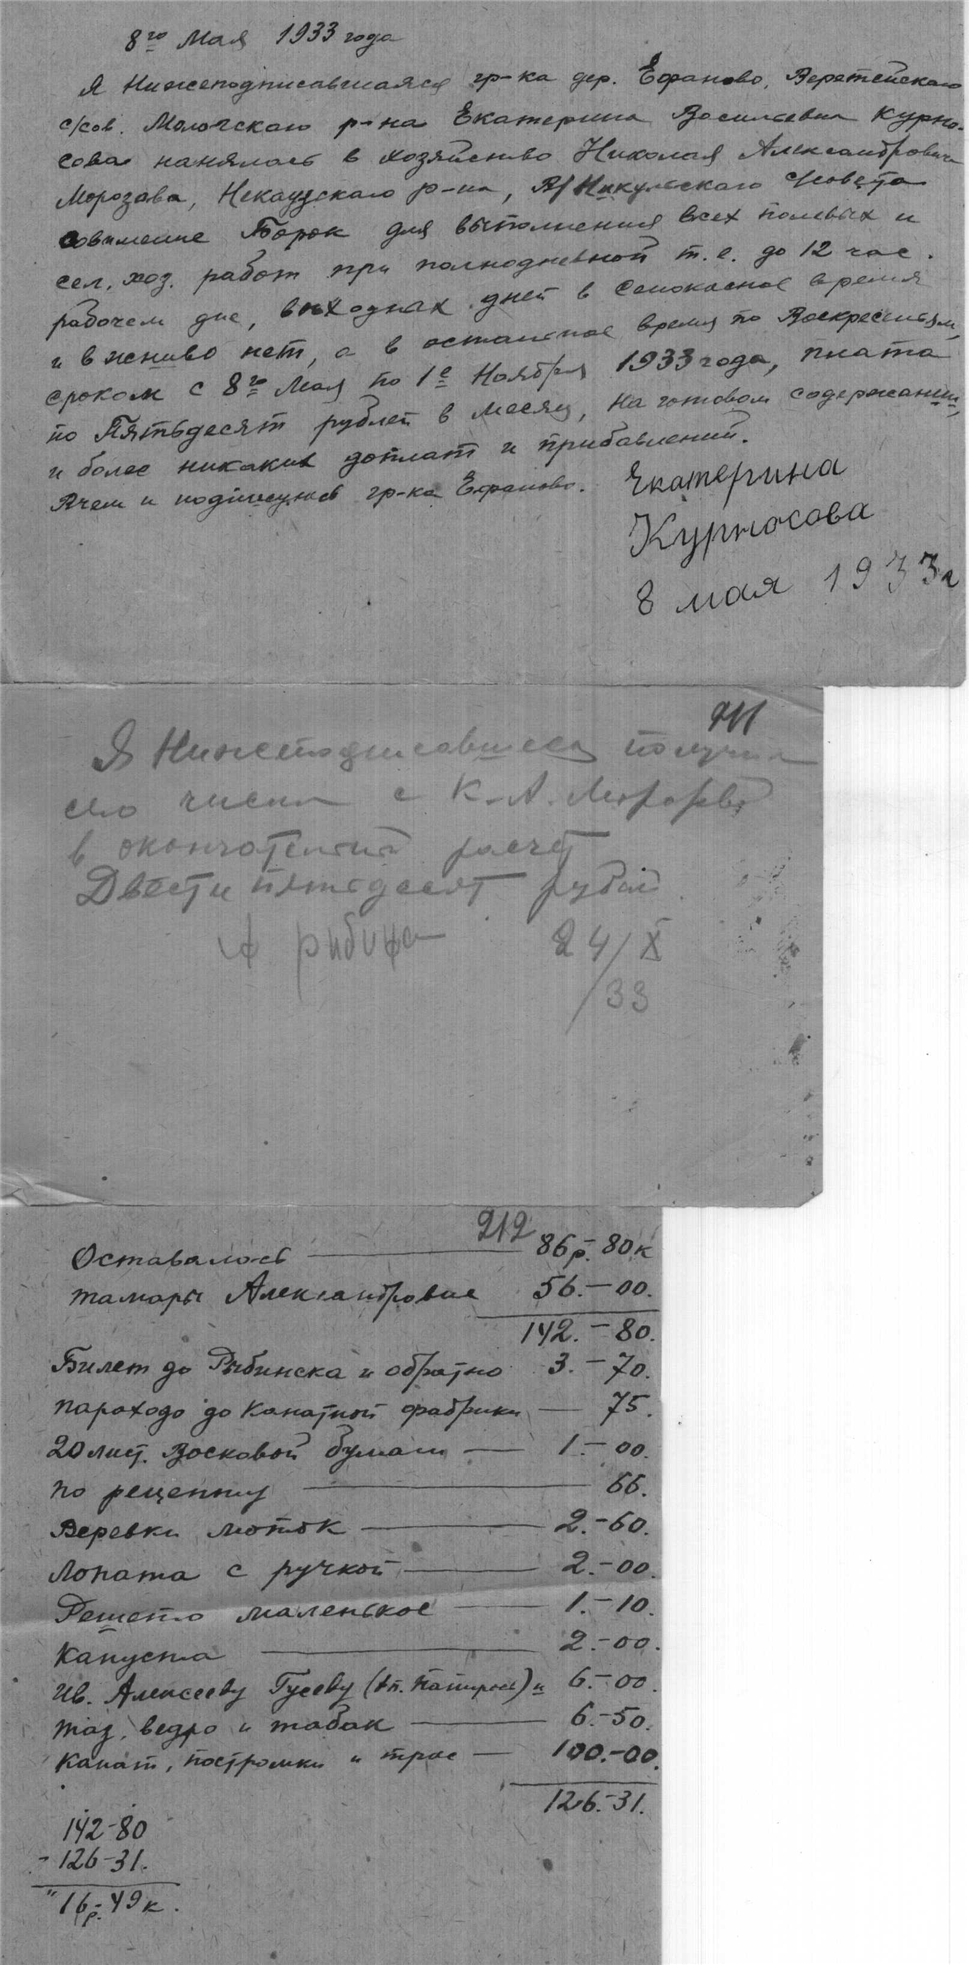 8го Мая 1933 года
Я Нижеподписавшаяся гр-ка дер. Ефаново, Веретейскаго
с/сов. Молочскаго р-на Екатерина Васильевна Курно-
сова нанялась в хозяйство Николая Александровича
Морозова, Некоузскаго р-на, Никульскаго с/совета
Борок для выполнения всех полевых и
сел. хоз. работ при полнодневной т.е. до 12 час.
рабочем дне, выходных дней в сенокосное время
и в жниво нет, а в остальное время по Воскресеньям,
сроком с 8го Мая по 1е Ноября 1933 года, плата
по Пятьдесят рублей в месяц, на готовом содержании,
и более никаких доплат и прибавлений.
В чем и подписуюсь гр-ка Ефаново.
Екатерина
Курносова
8 мая 1933 г
211
Я Нижеподписавшееся получил
сего числа с К.А. Морозовой
в окончательный расчет
Двести пятьдесят рублей
24/X
/33
212
Оставалось — 86р.-80к
Тамары Александровне 56.-00.
142.-80.
Билет до Рыбинска и обратно 3.-70.
пароходо до Канатной фабрики — 75.
20 лист. Восковой бумаги — 1.-00.
по рецепту — 66.
Веревки моток — 2.-60.
Лопата с ручкой — 2.-00.
Решето маленькое — 1.-10.
Капуста — 2.-00.
Ив. Алексееву Гусеву 6.-00.
таз, ведро и табак — 6.-50.
Канат, постромки и трос — 100.-00.
126.-31.
142-80
-126-31.
16р.-49к.